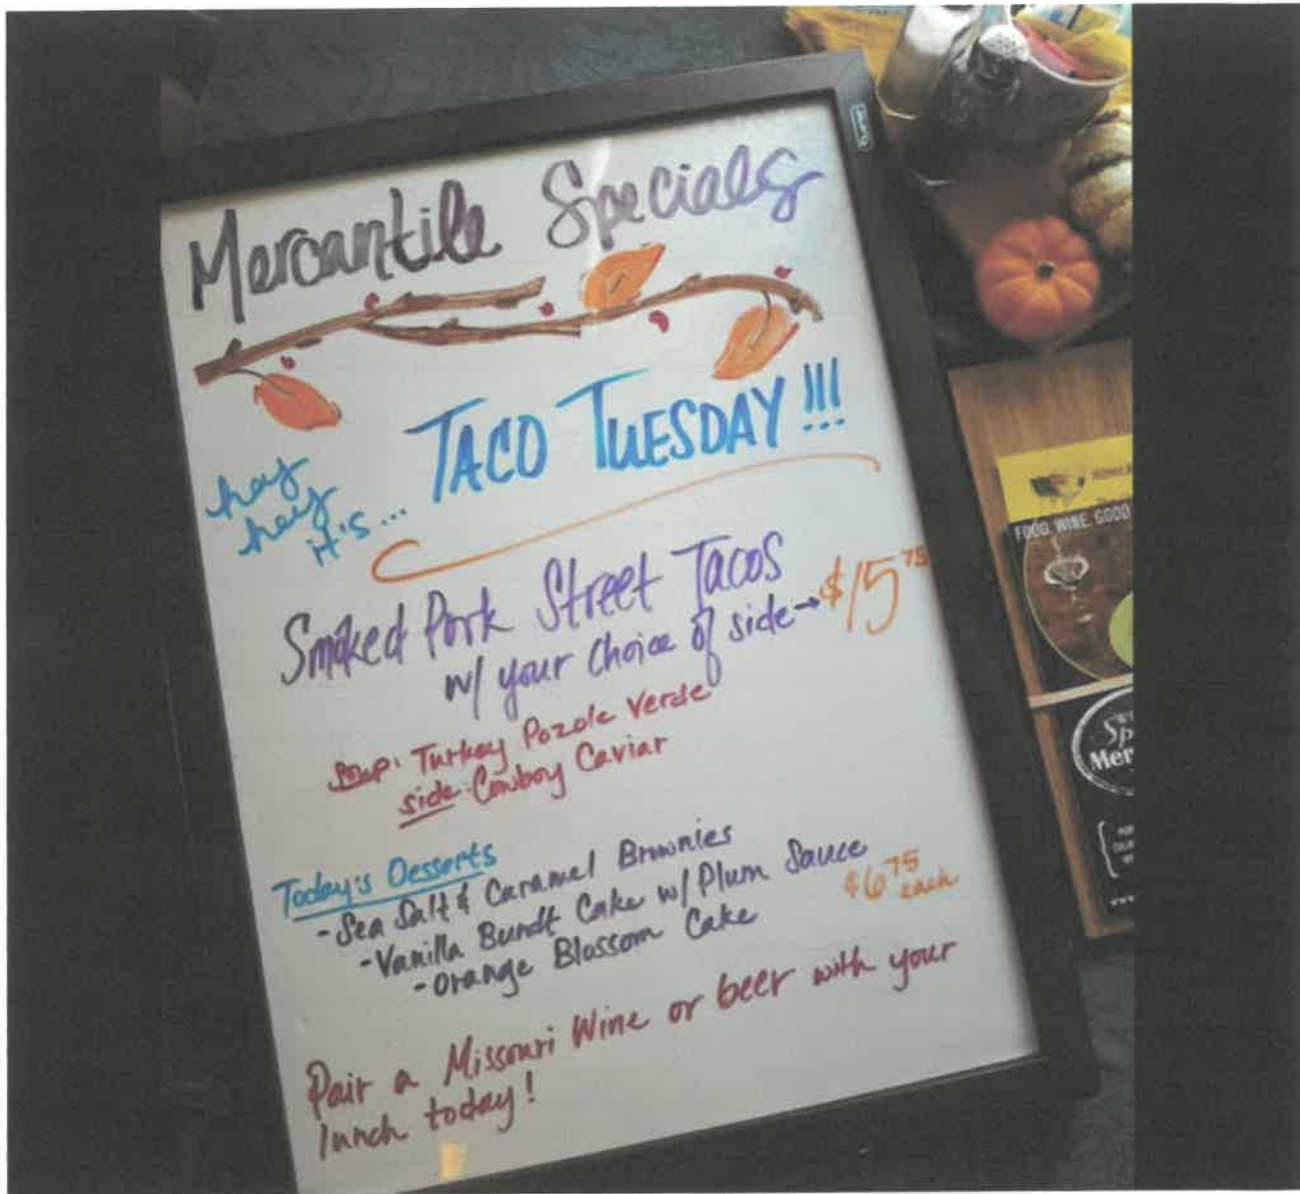 Mercantile Specials
hey
hey
it's... TACO TUESDAY!!!
Smoked Pork Street Tacos
w/ your choice of side→ $15 75
Soup: Turkey Pozole Verde
side: Cowboy Caviar
Today's Desserts
- Sea Salt & Caramel Brownies
- Vanilla Bundt Cake w/ Plum Sauce
- Orange Blossom Cake
$6 75
each
Pair a Missouri Wine or beer with your
lunch today!
FOOD. WINE. GOOD
Sp
Mer